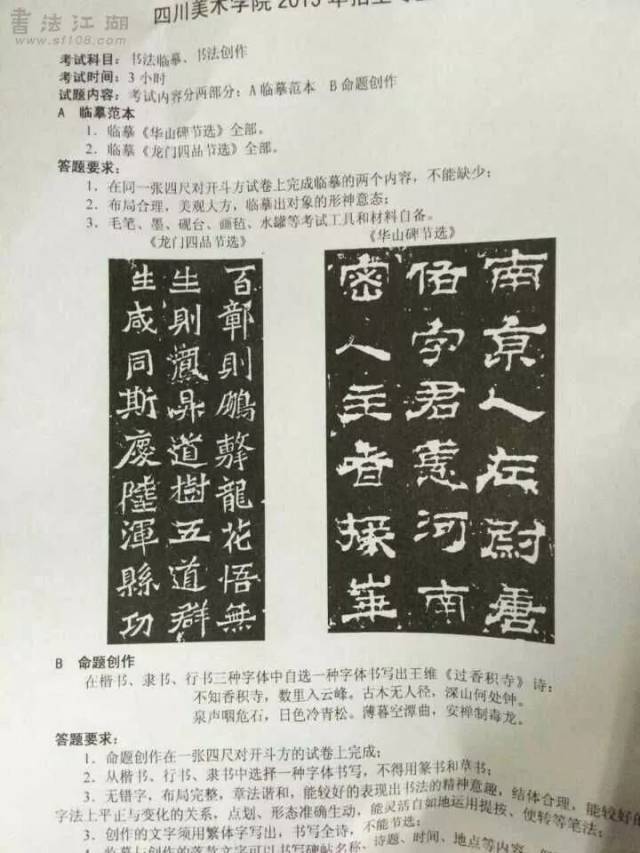 書法江湖
www.sf108.com
四川美术学院 2015 年招生
考试科目：书法临摹、书法创作
考试时间：3 小时
试题内容：考试内容分两部分：A 临摹范本　B 命题创作
A　临摹范本
1．临摹《华山碑节选》全部。
2．临摹《龙门四品节选》全部。
答题要求：
1．在同一张四尺对开斗方试卷上完成临摹的两个内容，不能缺少；
2．布局合理，美观大方，临摹出对象的形神意态；
3．毛笔、墨、砚台、画毡、水罐等考试工具和材料自备。
《龙门四品节选》
百鄣則鵬擊龍花悟無
生則鳳昇道樹五道群
生咸同斯慶陸渾縣功
《华山碑节选》
南京人左尉唐
佑字君惠河南
密人主者掾華
B　命题创作
在楷书、隶书、行书三种字体中自选一种字体书写出王维《过香积寺》诗：
不知香积寺，数里入云峰。古木无人径，深山何处钟。
泉声咽危石，日色冷青松。薄暮空潭曲，安禅制毒龙。
答题要求：
1．命题创作在一张四尺对开斗方的试卷上完成；
2．从楷书、行书、隶书中选择一种字体书写，不得用篆书和草书；
3．无错字，布局完整，章法谐和，能较好的表现出书法的精神意趣，结体合理，能较好的
字法上平正与变化的关系，点划、形态准确生动，能灵活自如地运用提按、使转等笔法；
3．创作的文字须用繁体字写出，书写全诗，不能节选；
4．临摹与创作的落款文字可以书写碑帖名称、诗题、时间、地点等内容，